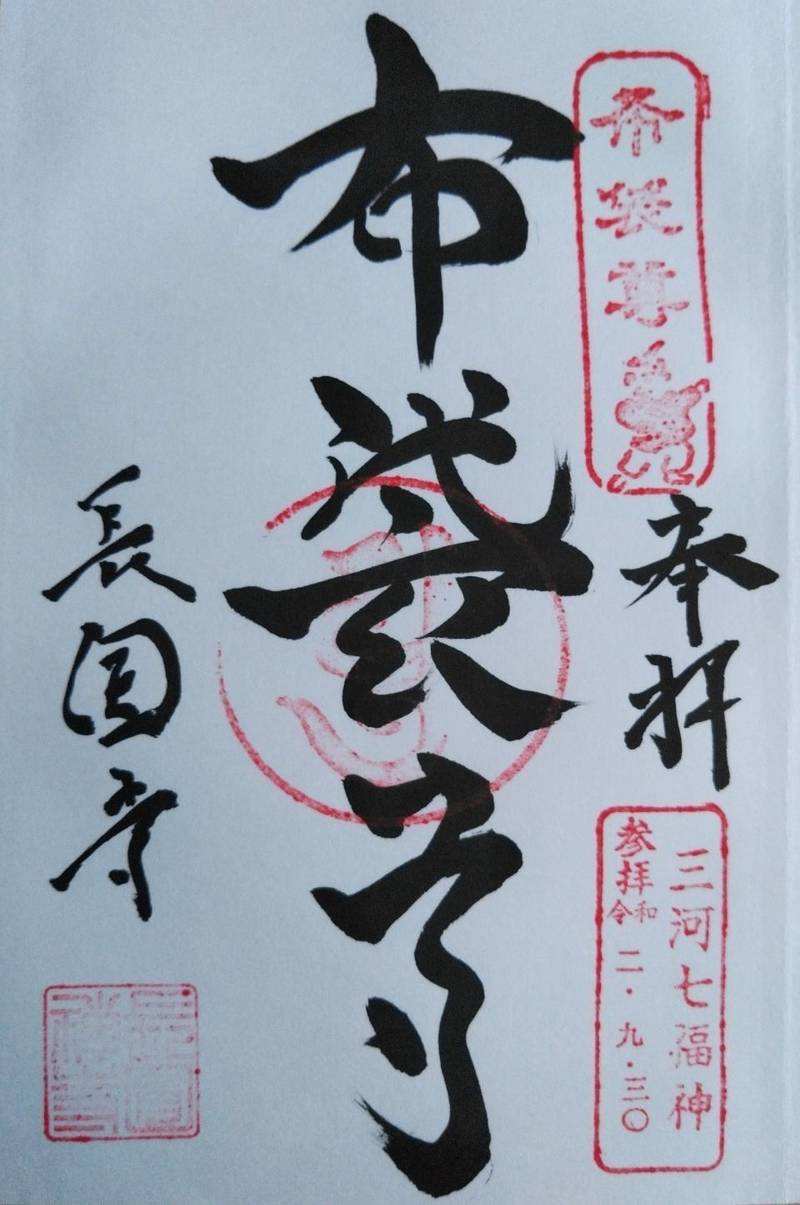 布袋尊
奉拝
三河七福神
参拝
令和
二・九・三〇
布袋尊
長圓寺